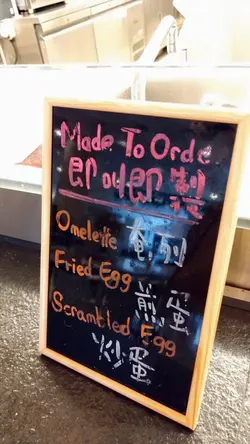 Made To Orde
即叫即製
Omelette 奄列
Fried Egg
煎蛋
Scrambled Egg
炒蛋